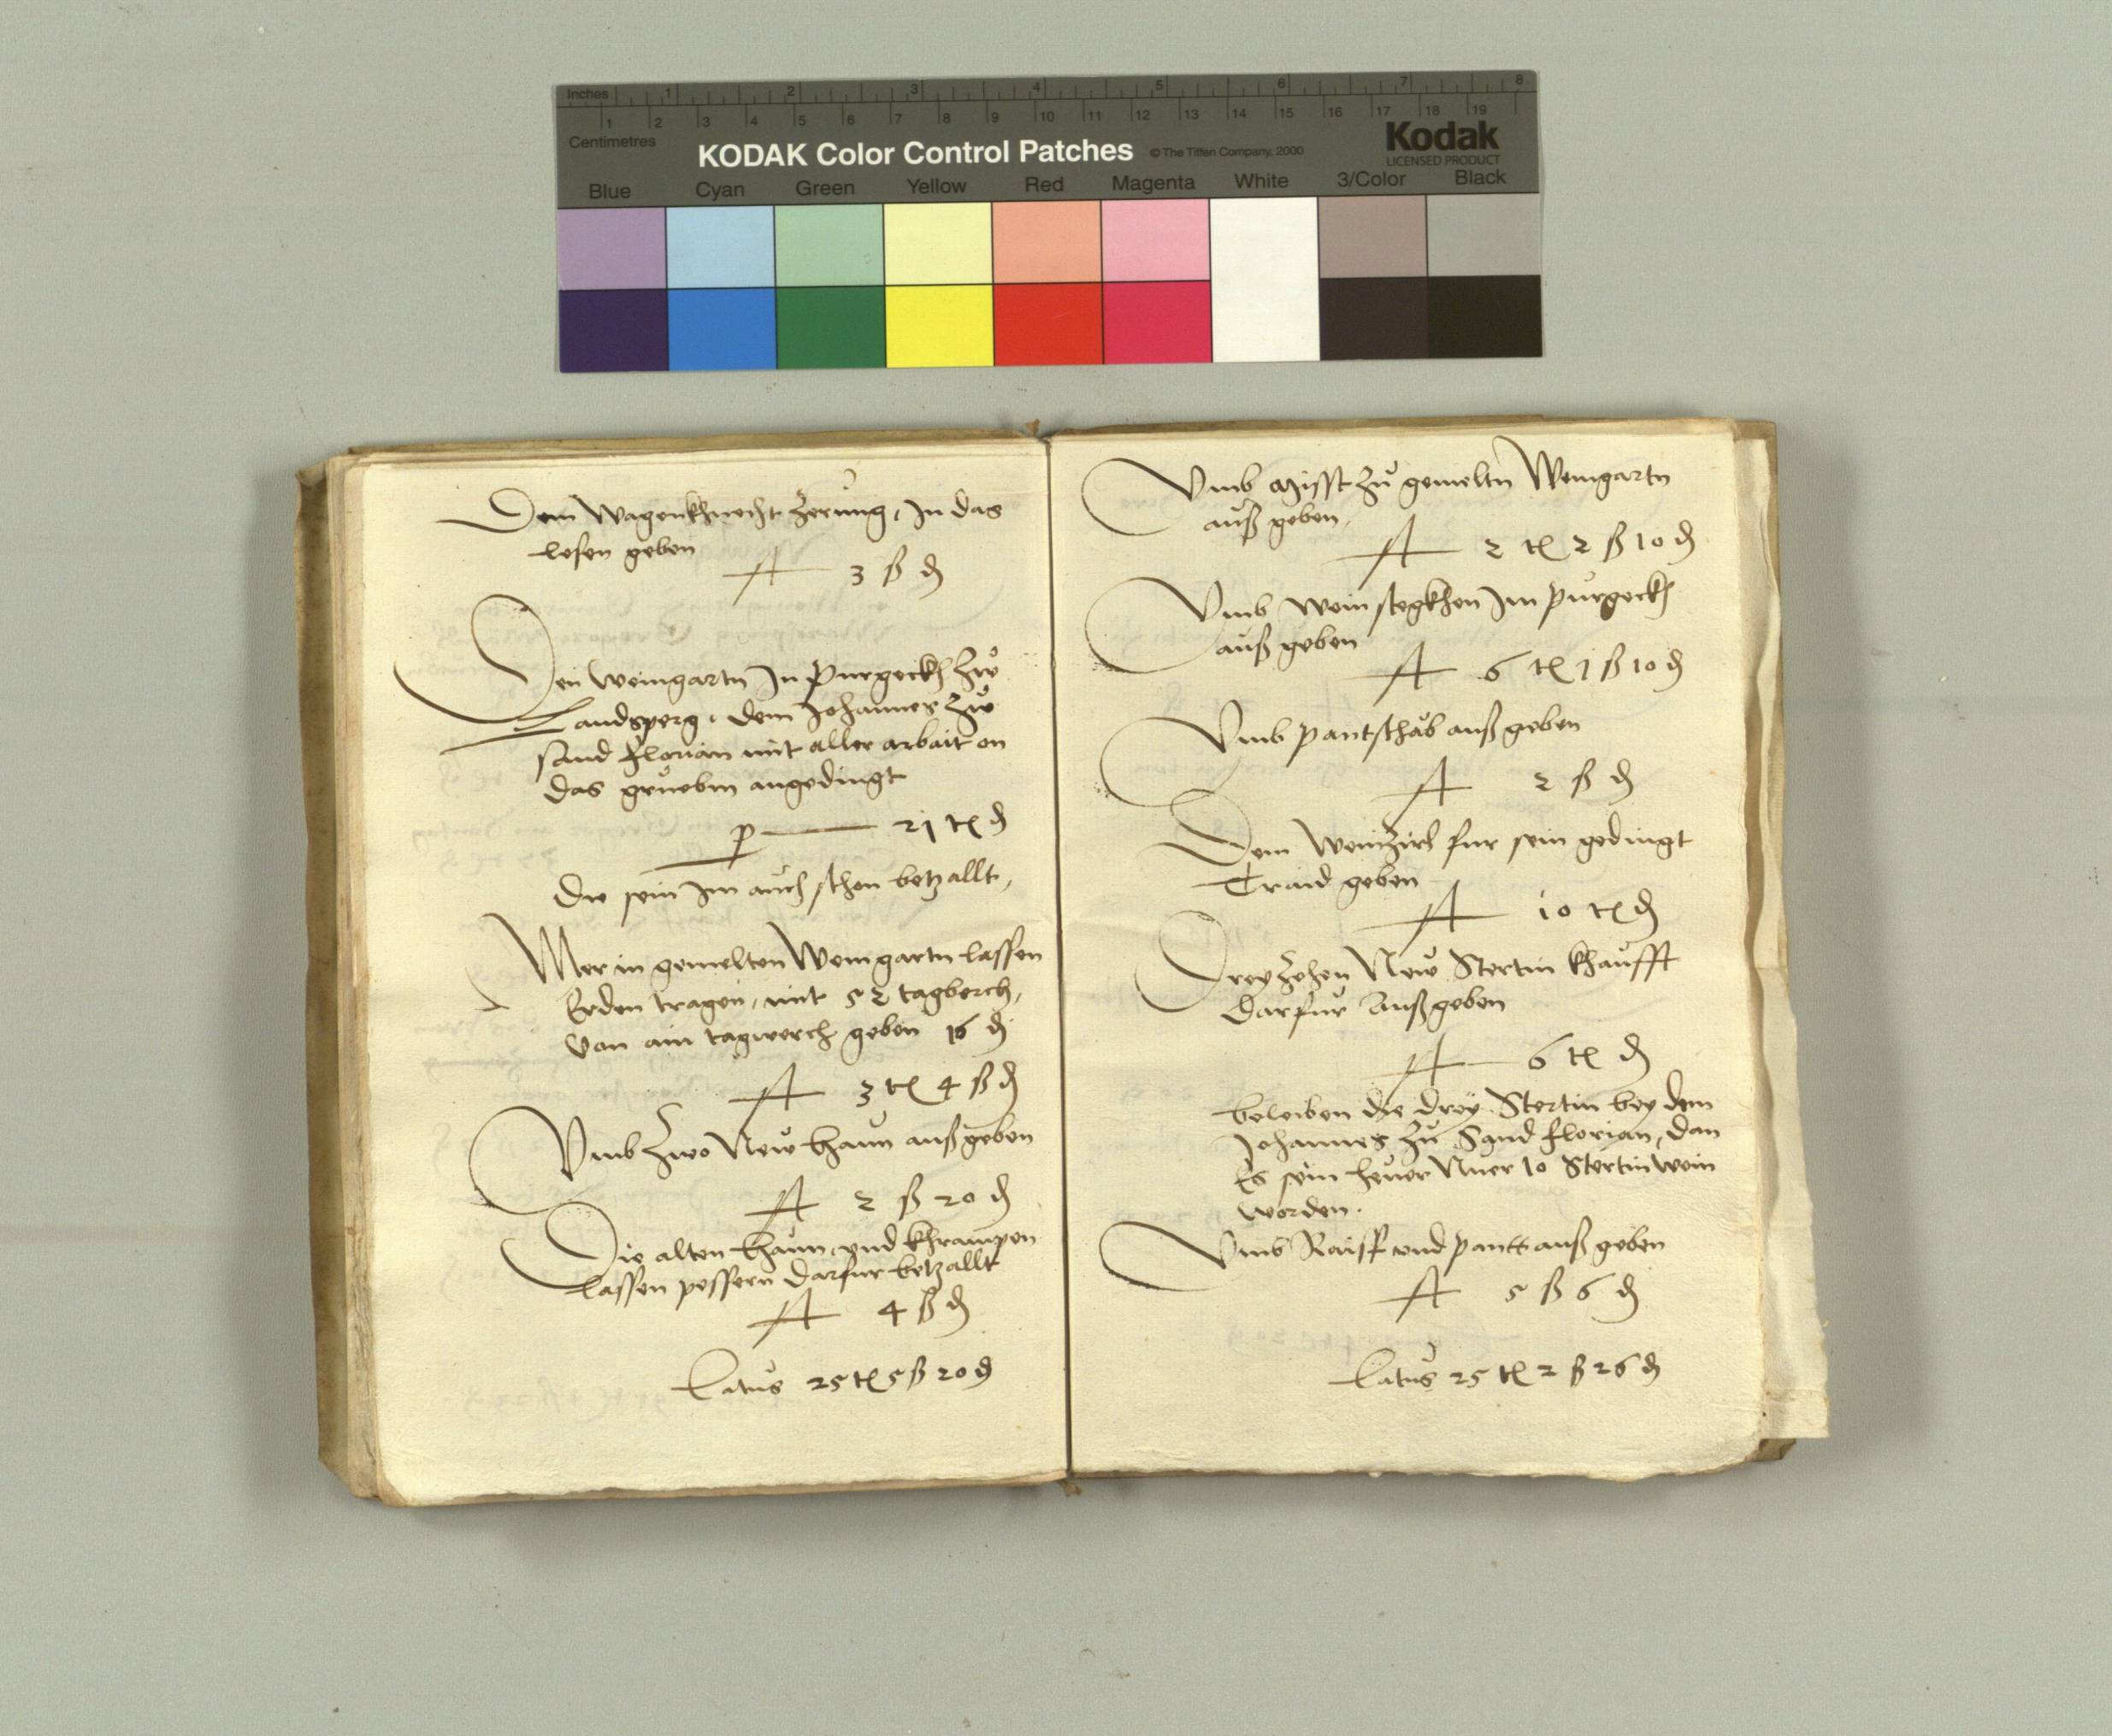 Inches 1 2 3 4 5 6 7 8
1 2 3 4 5 6 7 8 9 10 11 12 13 14 15 16 17 18 19
Centimetres
KODAK Color Control Patches © The Tiffen Company, 2000 Kodak
LICENSED PRODUCT
Blue Cyan Green Yellow Red Magenta White 3/Color Black
Dem Wagenkhnecht Zerung, In das
lesen geben
A 3 ß ₰
Den Weingartn In Purgeckh Zw
Landsperg, dem Johannes Zw
sand Florian mit aller arbait on
das gruebm angedingt
p 21 tl ₰
Die sein Im auch schon betzallt,
Mer in gemelten Weingartn lassen
Erden tragen, mit 52 tagberch,
von aim tagwerch geben 16 ₰
A 3 tl 4 ß ₰
Vmb Zwo New haun auß geben
A 2 ß 20 ₰
Die alten haun, vnd khrampen
lassen pessern darfur betzallt
A 4 ß ₰
Latus 25 tl 5 ß 20 ₰
Vmb Misst Zu gemeltn Weingartn
auß geben,
A 2 tl 2 ß 10 ₰
Vmb Weinstegkhen Im purgeckh
auß geben
A 6 tl 1 ß 10 ₰
Vmb pantschab auß geben
A 2 ß ₰
Dem Weinzirl fur sein gedingt
Traid geben
A 10 tl ₰
Dreyzehen New Stertin khaufft
darfur Auß geben
A 6 tl ₰
beleiben die drey Stertin bey dem
Johannes Zu Sand Florian, dan
Es sein heuer Nuer 10 Stertin wein
worden.
Vmb Raiff vnd pantt auß geben
A 5 ß 6 ₰
Latus 25 tl 2 ß 26 ₰